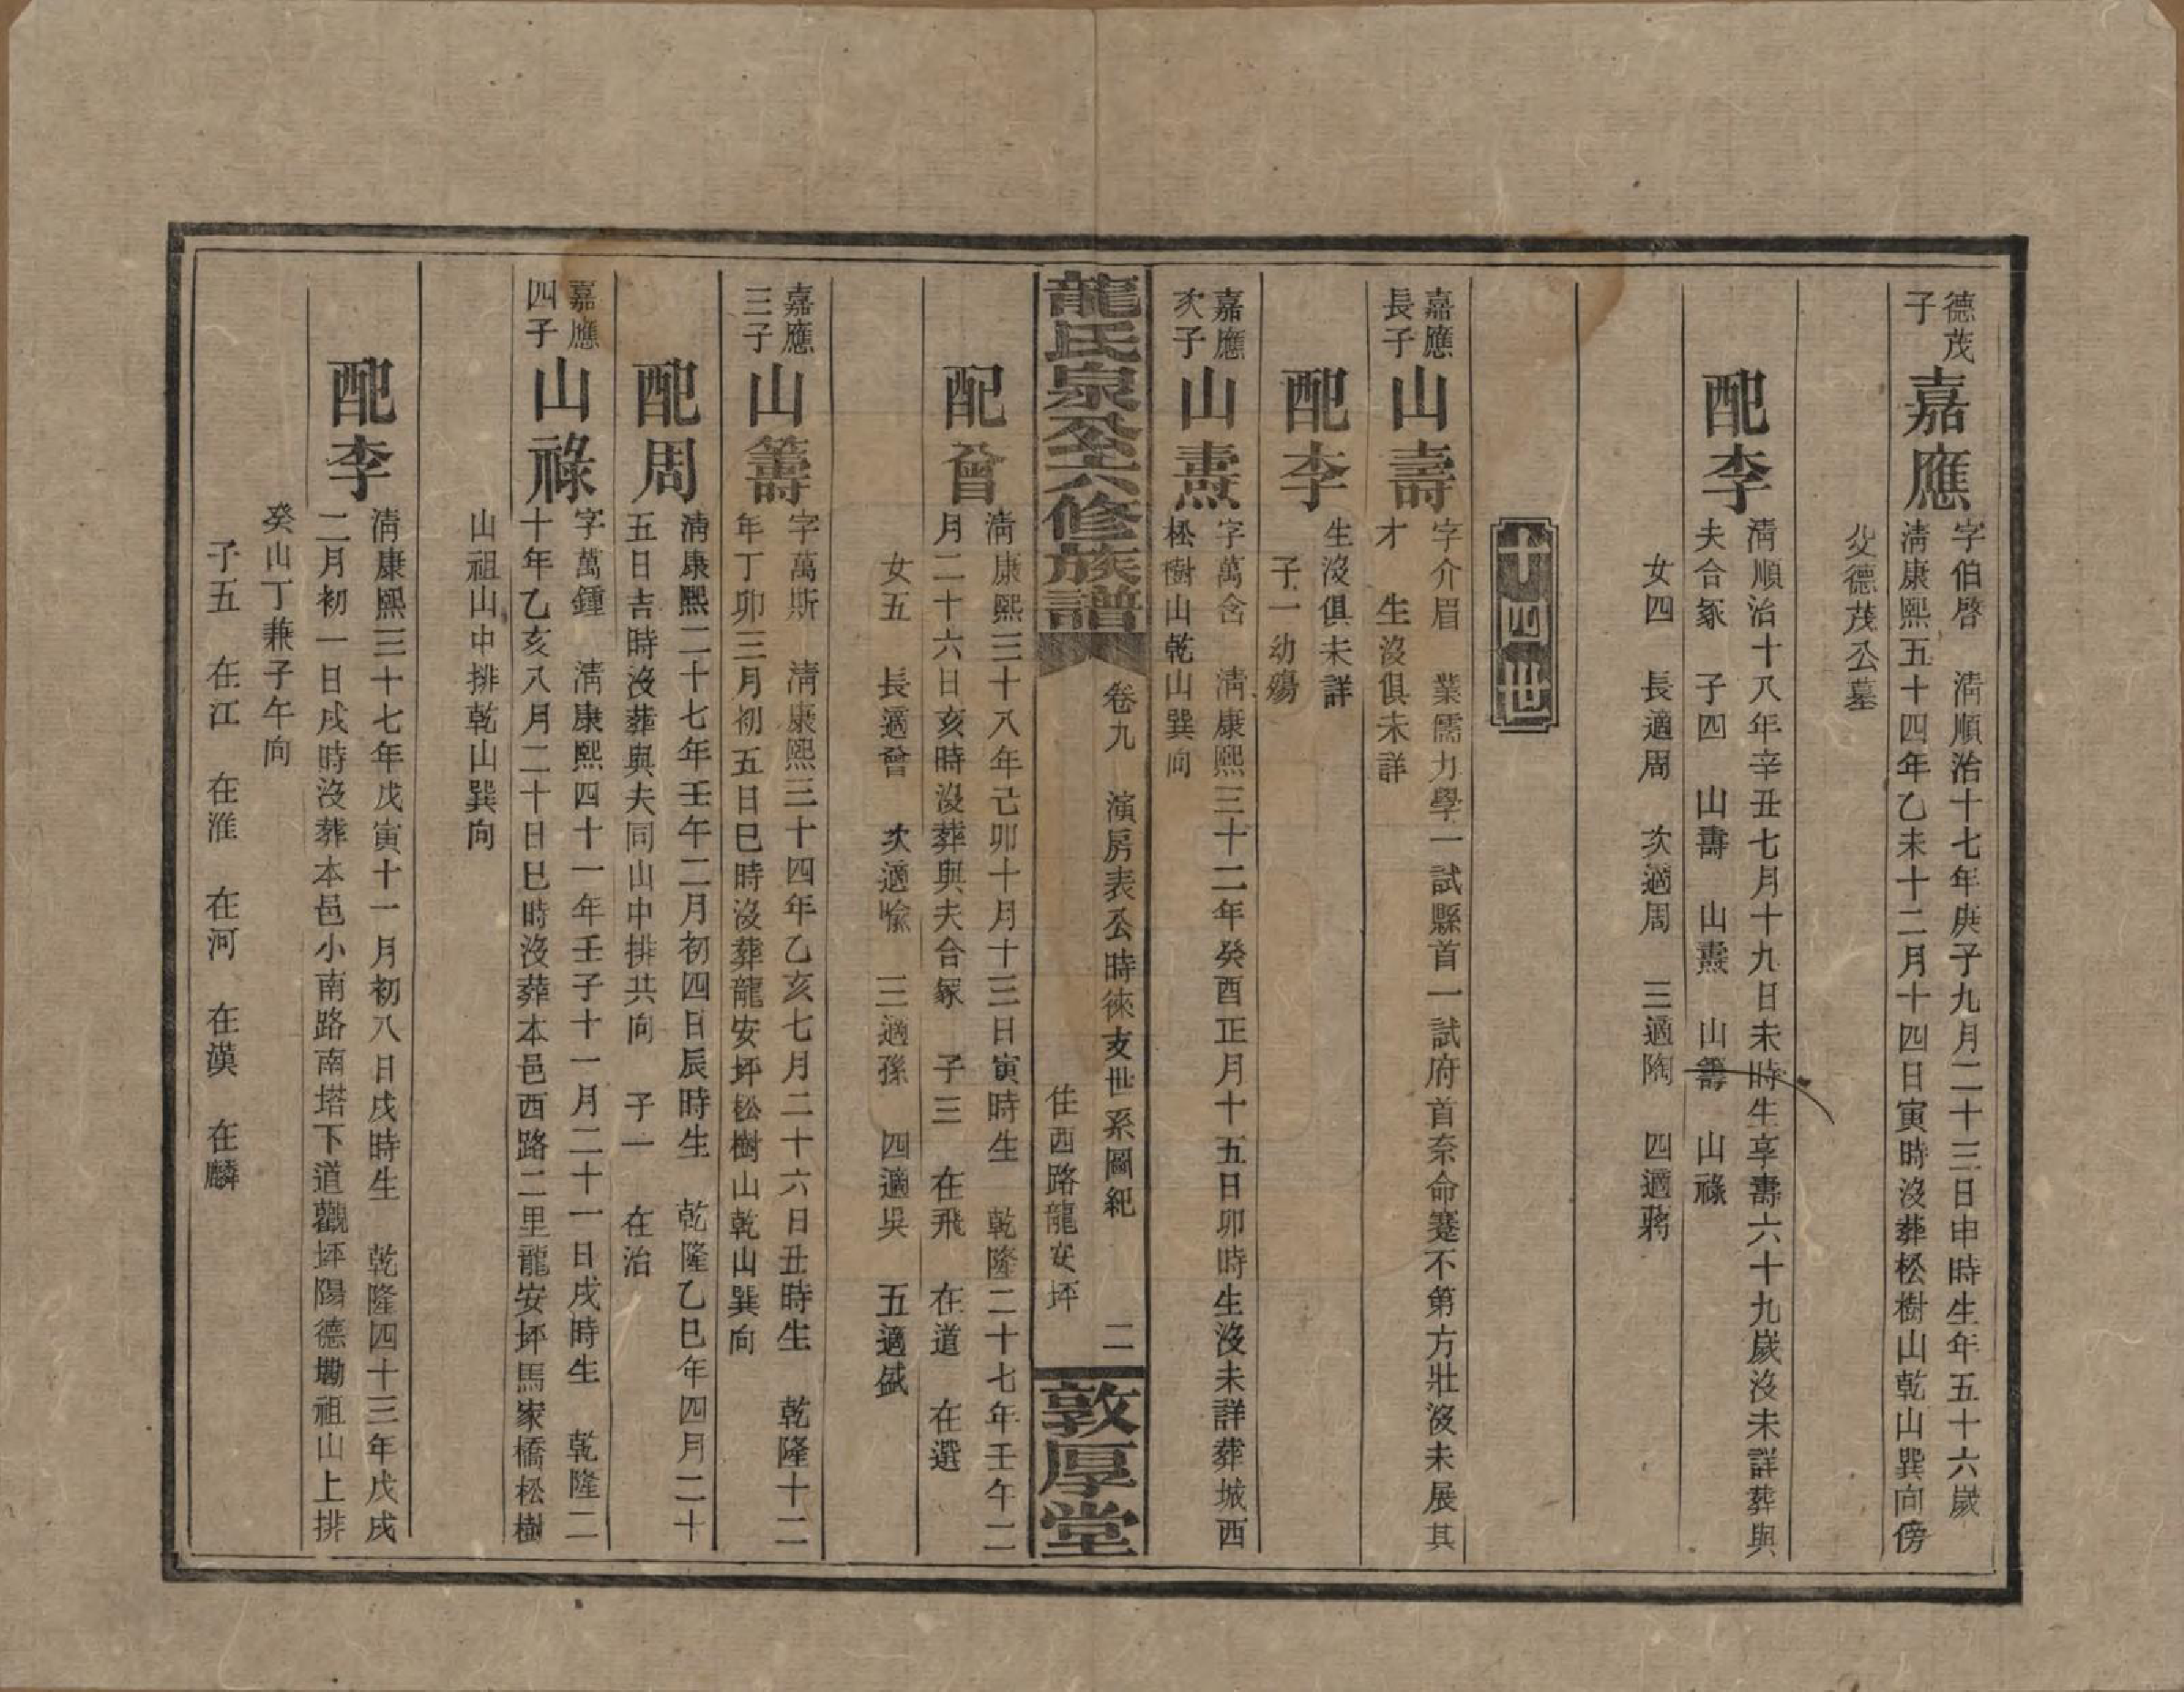 德茂
子
嘉應
字伯啓　清順治十七年庚子九月二十三日申時生年五十六歲
清康熙五十四年乙未十二月十四日寅時沒葬松樹山乾山巽向傍
父德茂公墓
配李
清順治十八年辛丑七月十九日未時生享壽六十九歲沒未詳葬與
夫合冢　子四　山壽　山燾　山籌　山祿
女四　長適周　次適周　三適陶　四適蔣
十四世
嘉應
長子
山壽
字介眉　業儒力學一試縣首一試府首奈命蹇不第方壯沒未展其
才　生沒俱未詳
配李
生沒俱未詳
子一幼殤
嘉應
次子
山燾
字萬含　清康熙三十二年癸酉正月十五日卯時生沒未詳葬城西
松樹山乾山巽向
龍氏泉公六修族譜
卷九　演房表公時徠支世系圖紀　二
住西路龍安坪
敦厚堂
配曾
清康熙三十八年己卯十月十三日寅時生　乾隆二十七年壬午二
月二十六日亥時沒葬與夫合冢　子三　在飛　在道　在選
女五　長適曾　次適喻　三適孫　四適吳　五適盛
嘉應
三子
山籌
字萬斯　清康熙三十四年乙亥七月二十六日丑時生　乾隆十二
年丁卯三月初五日巳時沒葬龍安坪松樹山乾山巽向
配周
清康熙二十七年壬午二月初四日辰時生　乾隆乙巳年四月二十
五日吉時沒葬與夫同山中排共向　子一　在治
嘉應
四子
山祿
字萬鍾　清康熙四十一年壬子十一月二十一日戌時生　乾隆二
十年乙亥八月二十日巳時沒葬本邑西路二里龍安坪馬家橋松樹
山祖山中排乾山巽向
配李
清康熙三十七年戊寅十一月初八日戌時生　乾隆四十三年戊戌
二月初一日戌時沒葬本邑小南路南塔下道觀坪陽德墈祖山上排
癸山丁兼子午向
子五　在江　在淮　在河　在漢　在麟